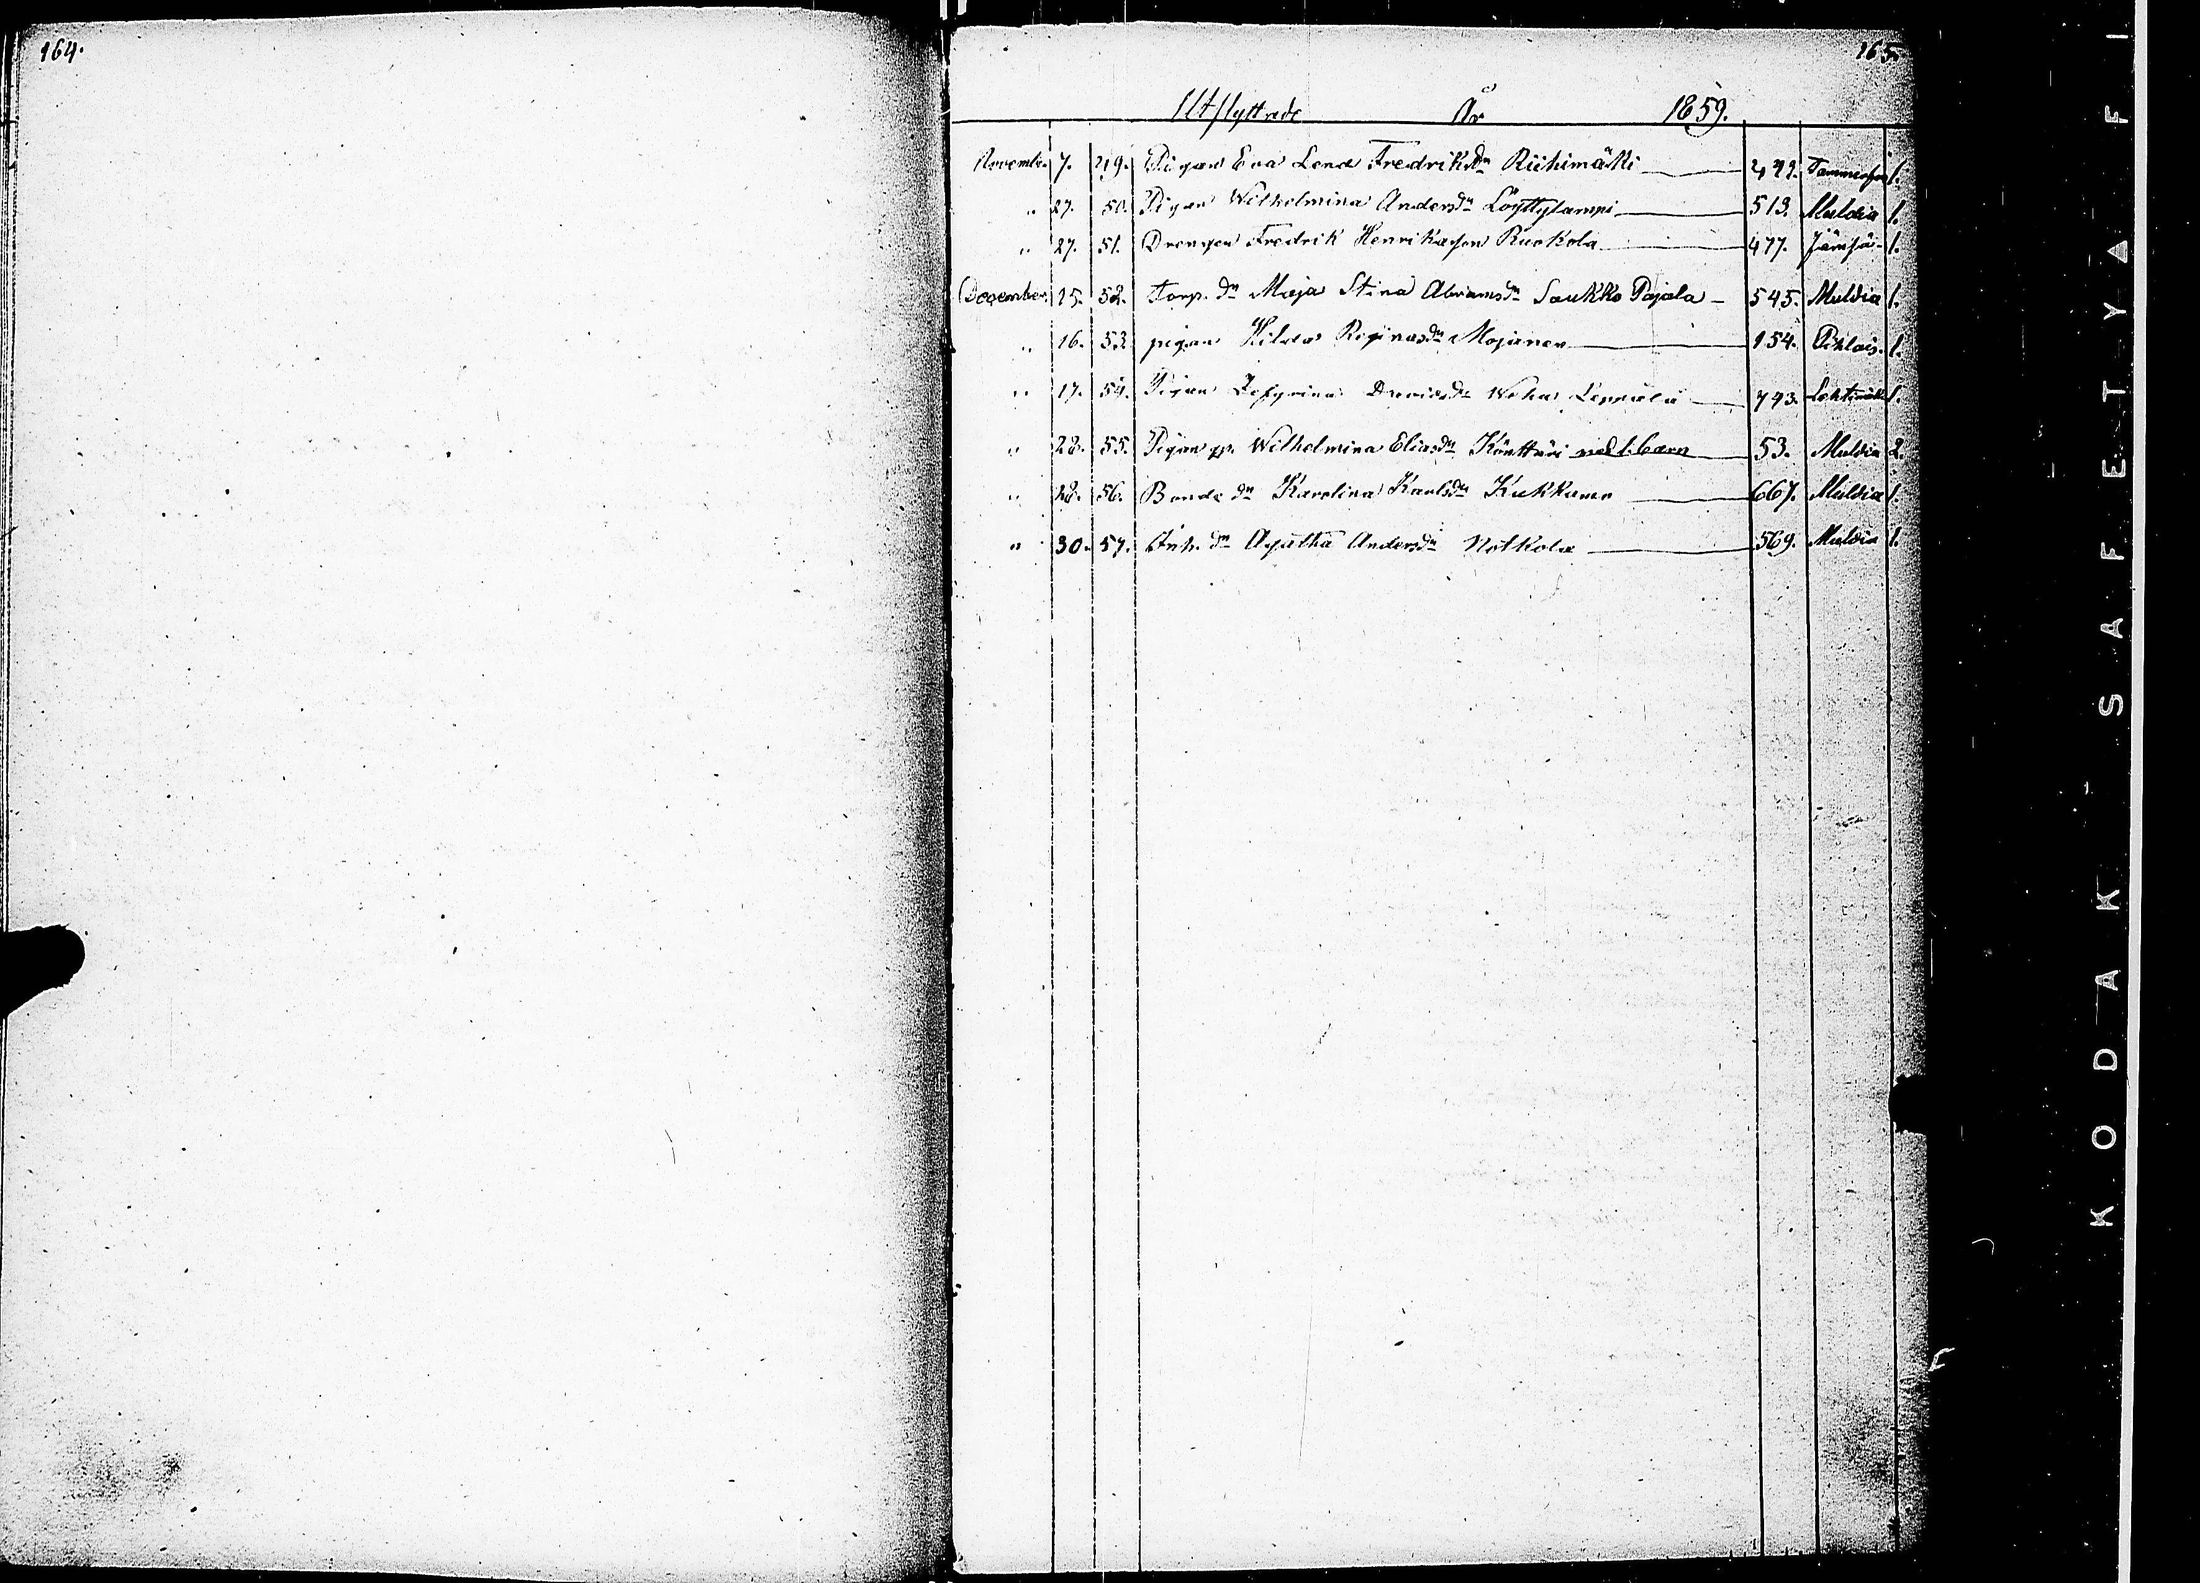 164.
165.
Utflyttade År 1859.
November 7. 49. Pigan Eva Lena Fredriksdr Riihimäki 449. Tammerfors 1.
" 27. 50. Pigan Wilhelmina Andersdr Löyttylampi 513. Muldia 1.
" 27. 51. Drengen Fredrik Henriksson Ruokola 477. Jämsä 1.
December 15. 52. Torp. dr Maja Stina Abramsdr Saukko Pajala 545. Muldia 1.
" 16. 53. pigan Hilda Reginasdr Mojanen 154. Pihlais. 1.
" 17. 54. Pigan Zefyrina Davidsdr Leppälä 743. 1.
" 28. 55. Pigan Wilhelmina Eliasdr Könttäri med 1. barn 53. Muldia 2.
" 28. 56. Bonde dr Karolina Karlsdr Kukkaro 667. Muldia 1.
" 30. 57. Inh. dr Agatha Andersdr Notkola 569. Muldia 1.
KODAK SAFETY FI